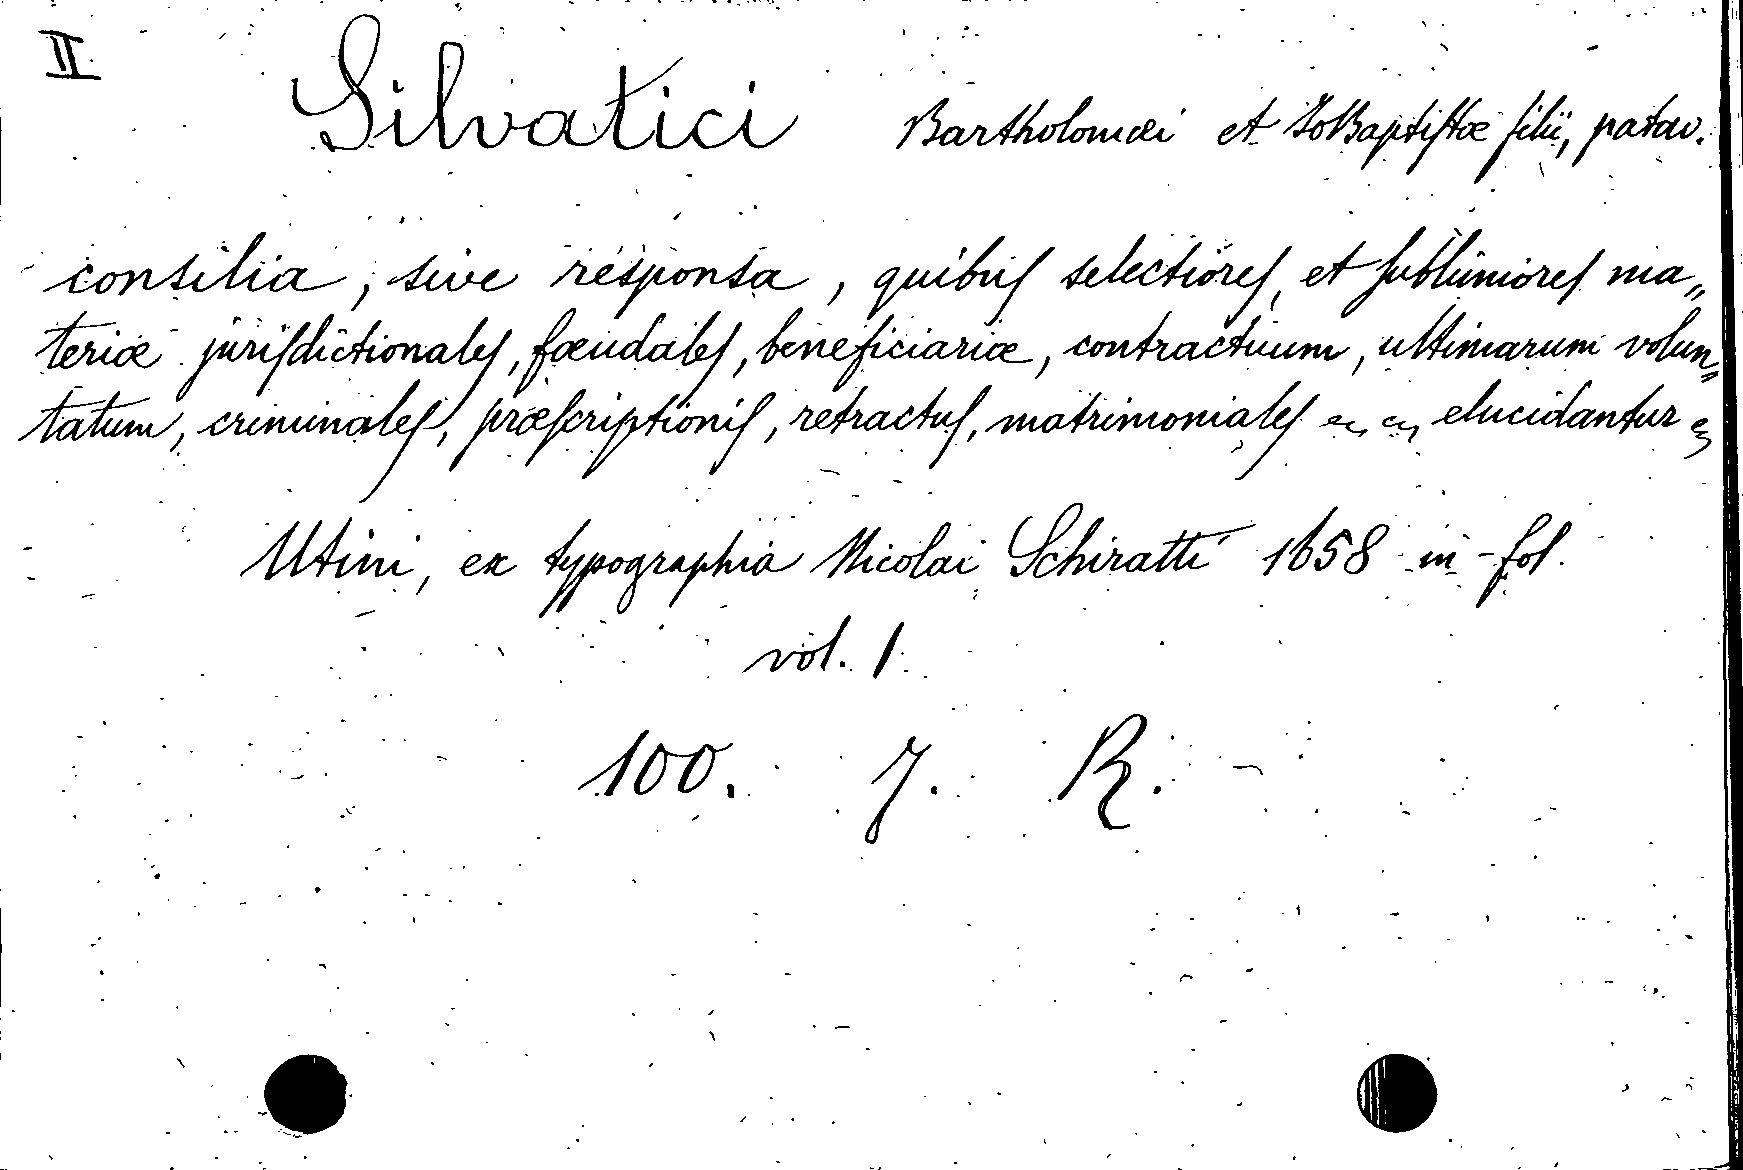 II
Silvatici Bartholomæi et IoBaptiſtæ filii, patav.
consilia, sive responsa, quibus selectiores, et sublimiores ma„
teriæ jurisdictionales, fœudales, beneficiariæ, contractuum, ultimarum volun„
tatum, criminales, præscriptionis, retractus, matrimoniales elucidantur
Utini, ex typographia Nicolai Schiratti 1658 in-fol.
vol. 1.
100. J. R.